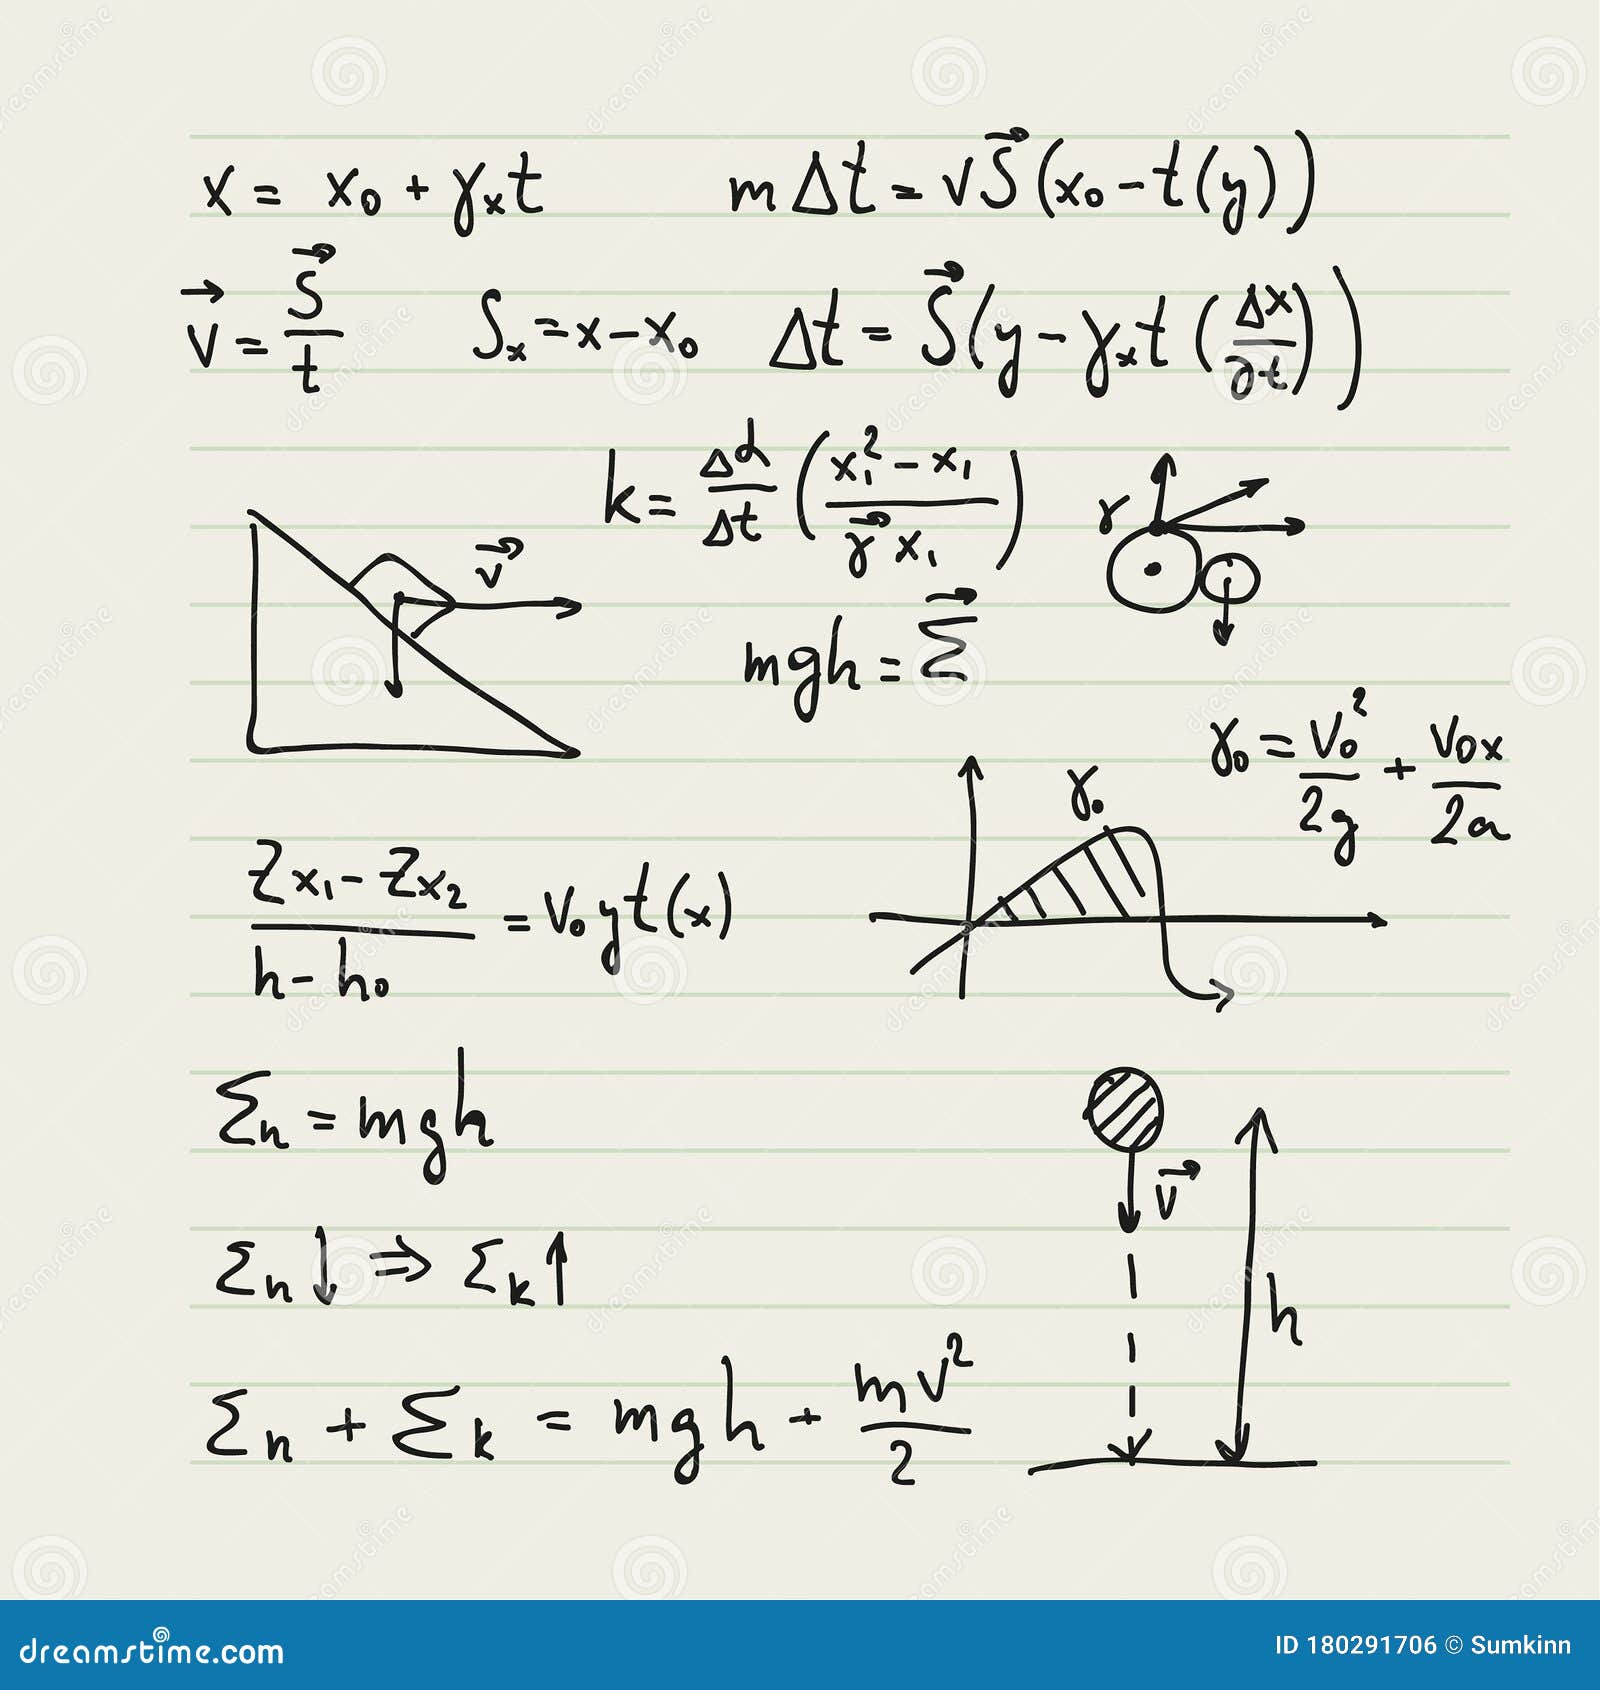 x = x₀ + γₓt
m Δt = vS⃗ (x₀ - t(y))
v⃗ = S⃗/t
Sₓ = x - x₀
Δt = S⃗(y - γₓt (Δx/∂t))
k = Δα/Δt ((x₁² - x₁)/(γ⃗ x₁))
r
v⃗
mgh = Σ⃗
γ₀ = v₀²/2g + v₀x/2a
γ₀
(Zx₁ - Zx₂)/(h - h₀) = v₀yt(x)
Σₙ = mgh
v⃗
Σₙ↓ ⇒ Σₖ↑
h
Σₙ + Σₖ = mgh + mv²/2
dreamstime.com
ID 180291706 © Sumkinn